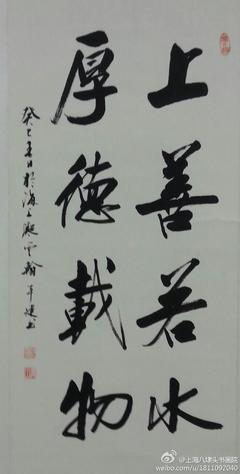 上善若水
厚德載物
癸巳春日於海上
上海八埭头书画院
weibo.com/u/1811092040